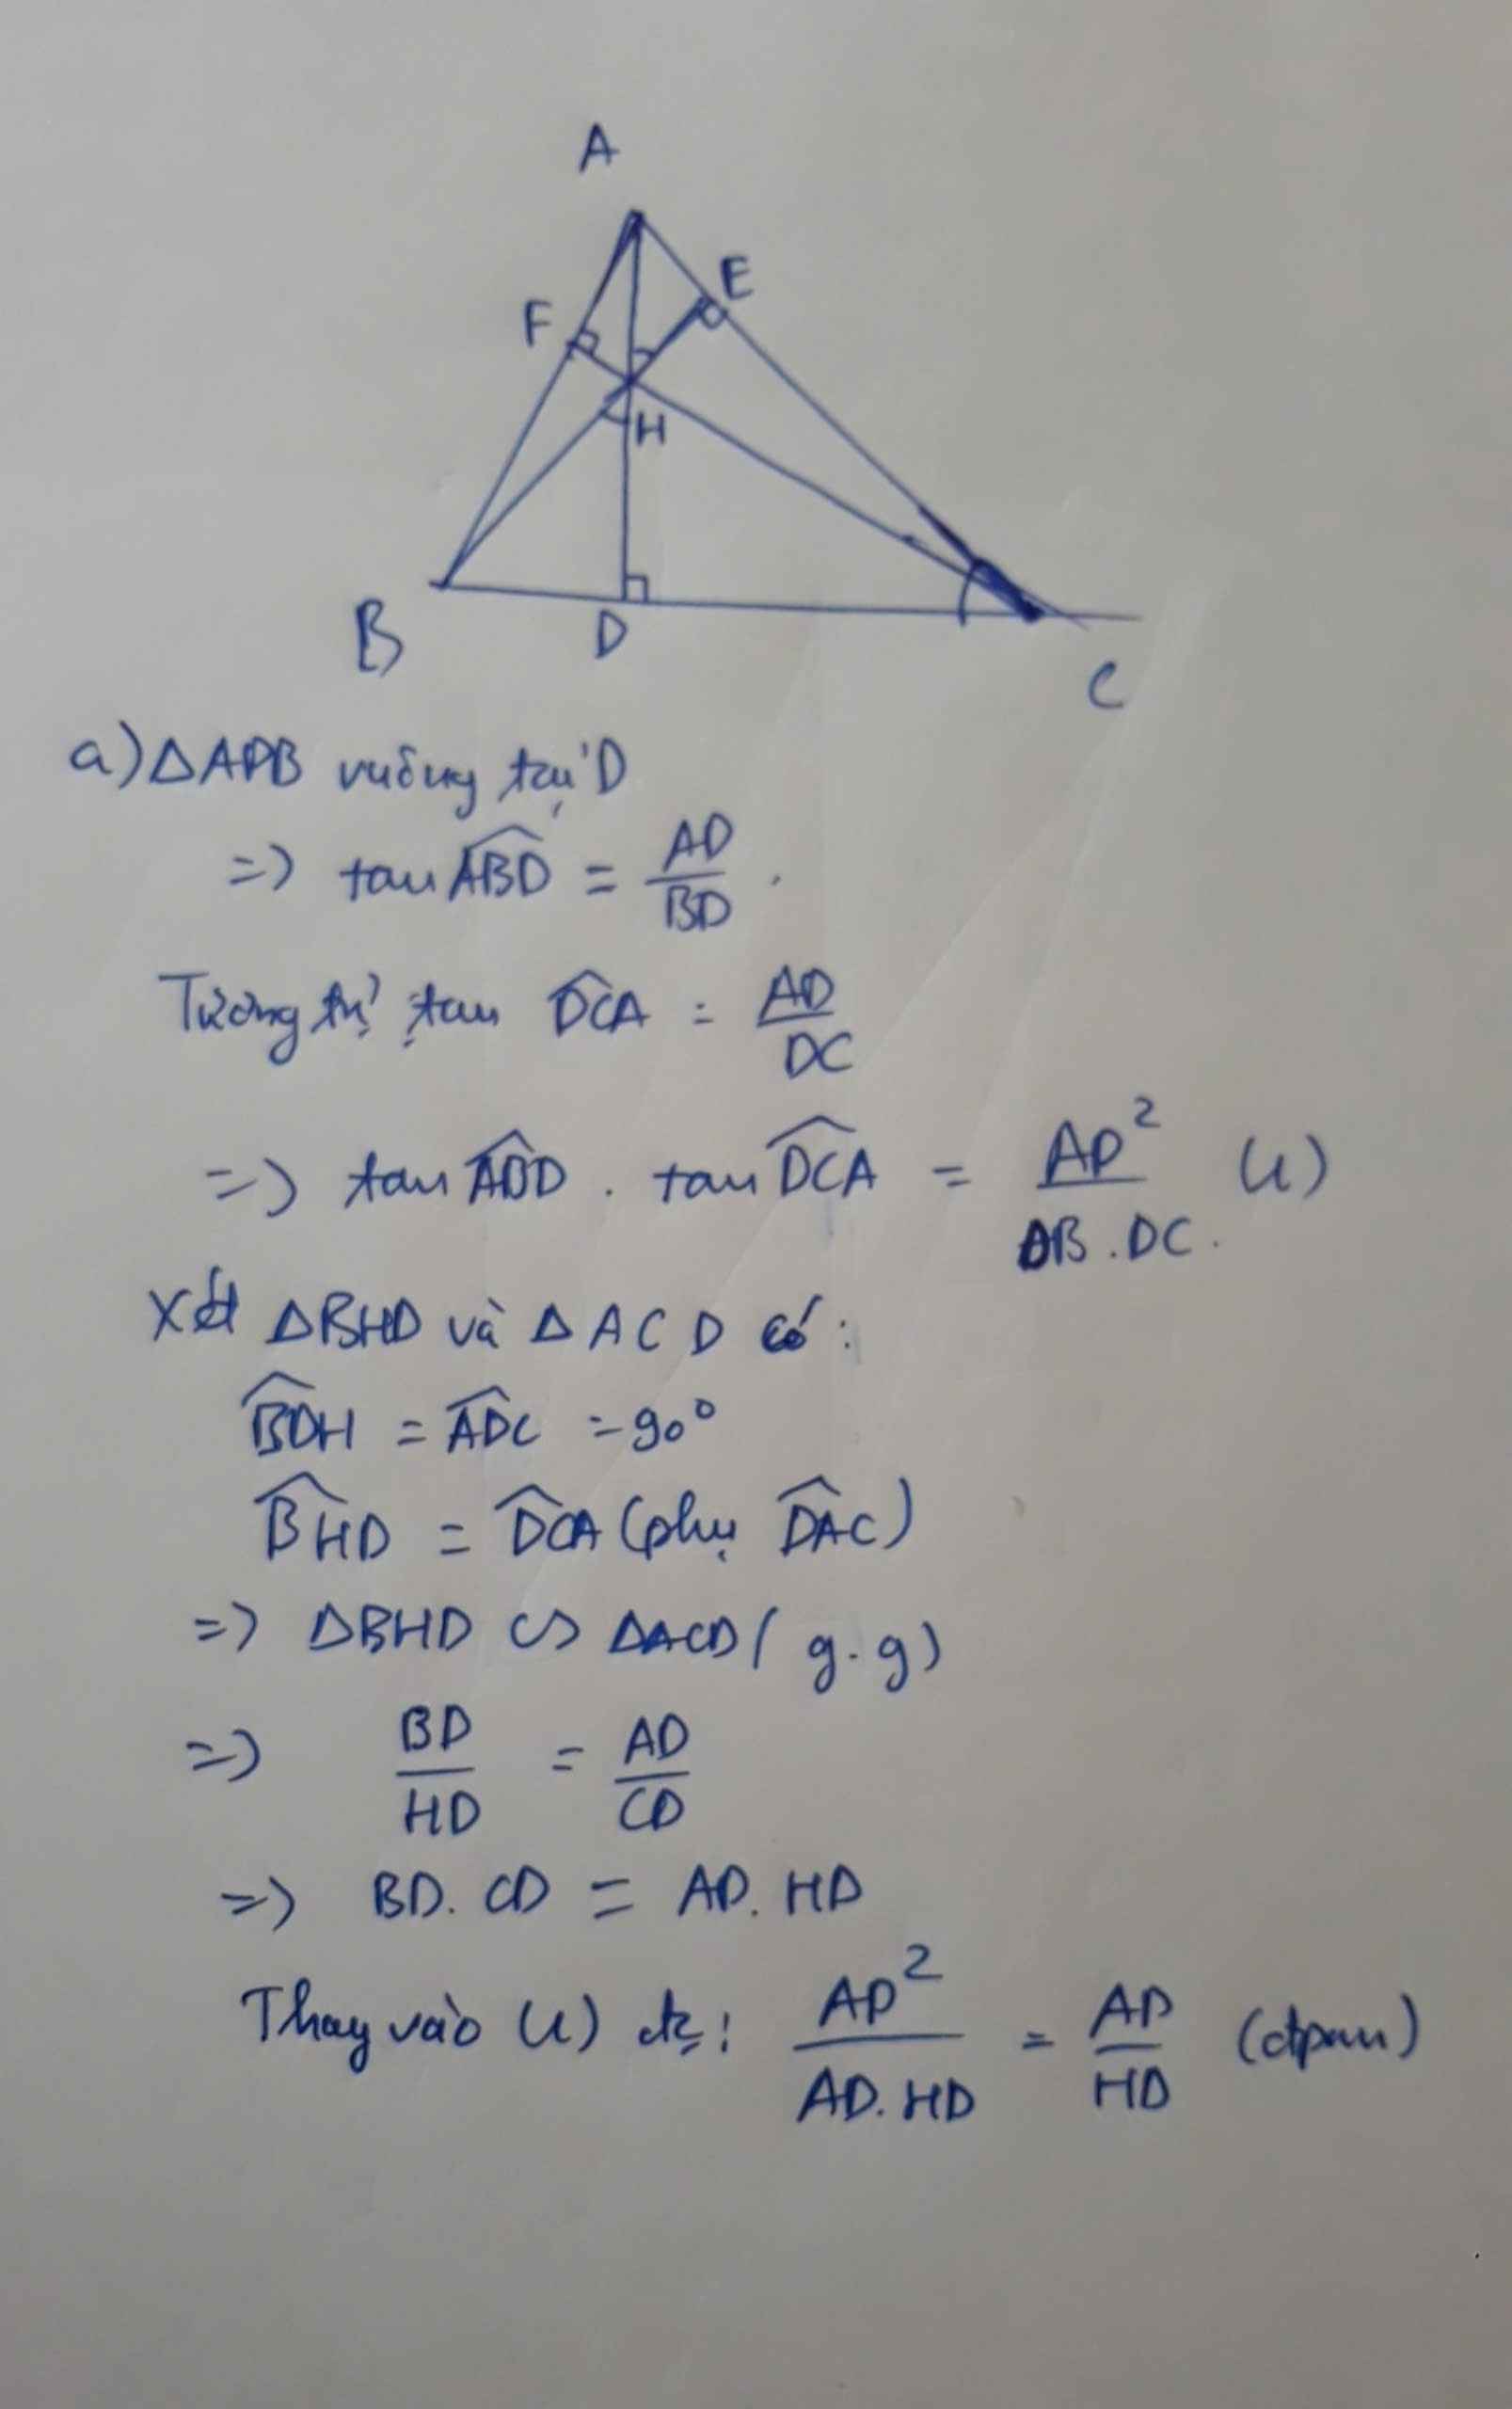 A
E
F
H
B
D
C
a) ΔADB vuông tại D
=> tan ABD = AD/BD.
Tương tự, tan DCA = AD/DC
=> tan ABD . tan DCA = AD²/DB.DC. (1)
Xét ΔBHD và ΔACD có:
BDH = ADC = 90°
BHD = DCA (phụ DAC)
=> ΔBHD ∽ ΔACD (g.g)
=> BD/HD = AD/CD
=> BD.CD = AD.HD
Thay vào (1) đc: AD²/AD.HD = AD/HD (đpcm)